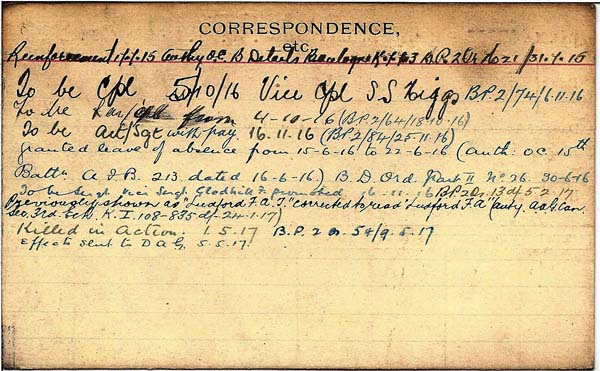 CORRESPONDENCE,
etc.
Reinforcement 1.7.15 Authy O.C. B Details Boulogne B.P.2 31.7.15
To be Cpl 5/10/16 Vice Cpl S.S. Higgs B.P.2/74/6.11.16
To be Lar/Cpl from 4-10-16 (B.P.2/64/18-10-16)
To be act/Sgt with pay 16.11.16 (B.P.2/84/25-11-16)
granted leave of absence from 15-6-16 to 22-6-16 (auth: OC. 15th
Battn A.F.B. 213 dated 16-6-16.) B.D. Ord. Part II No 26. 30-6-16
To be Sergt. vice Sergt. Gledhill F. promoted, 16-11-16 B.P.2 Or. 13 d/- 5.2.17
(Previously shown as "Ludford F.A.J." corrected to read "Ludford F.A" (auty. a.a.G. Can.
Sec. 3rd. Ech. K.I. 108-835 d/- 24-1-17)
Killed in Action. 1.5.17 B.P.2 o. 54/9.5.17
Effects sent to D A G. 5.5.17.